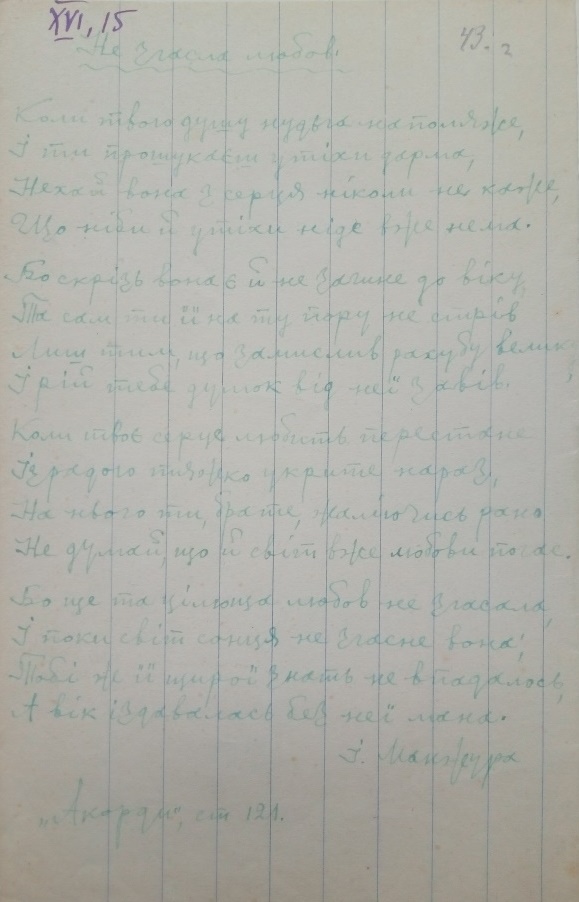 XVI, 15
43. 2
Не згасла любов.
Коли твого душу нудьга наполяже,
І ти прошукаєш утіхи дарма,
Нехай вона з серця ніколи не каже,
Що ніби й утіхи ніде вже нема.
Бо скрізь вона є й не загине до віку,
Та сам ти її на ту пору не стрів
Лиш тим, що замислив рахубу велику
І рій тебе думок від неї завів.
Коли твоє серце любить перестане
Із радого тяжко укрите нараз,
На нього ти, брате, жаліючись рано
Не думай, що й світ вже любови погас.
Бо ще та цілюща любов не згасала,
І поки світ сонця не згасне вона;
Тобі ж її щирої знать не впадалось,
А вік іздавалась без неї мана.
І. Манжура
„Акорди", ст 121.